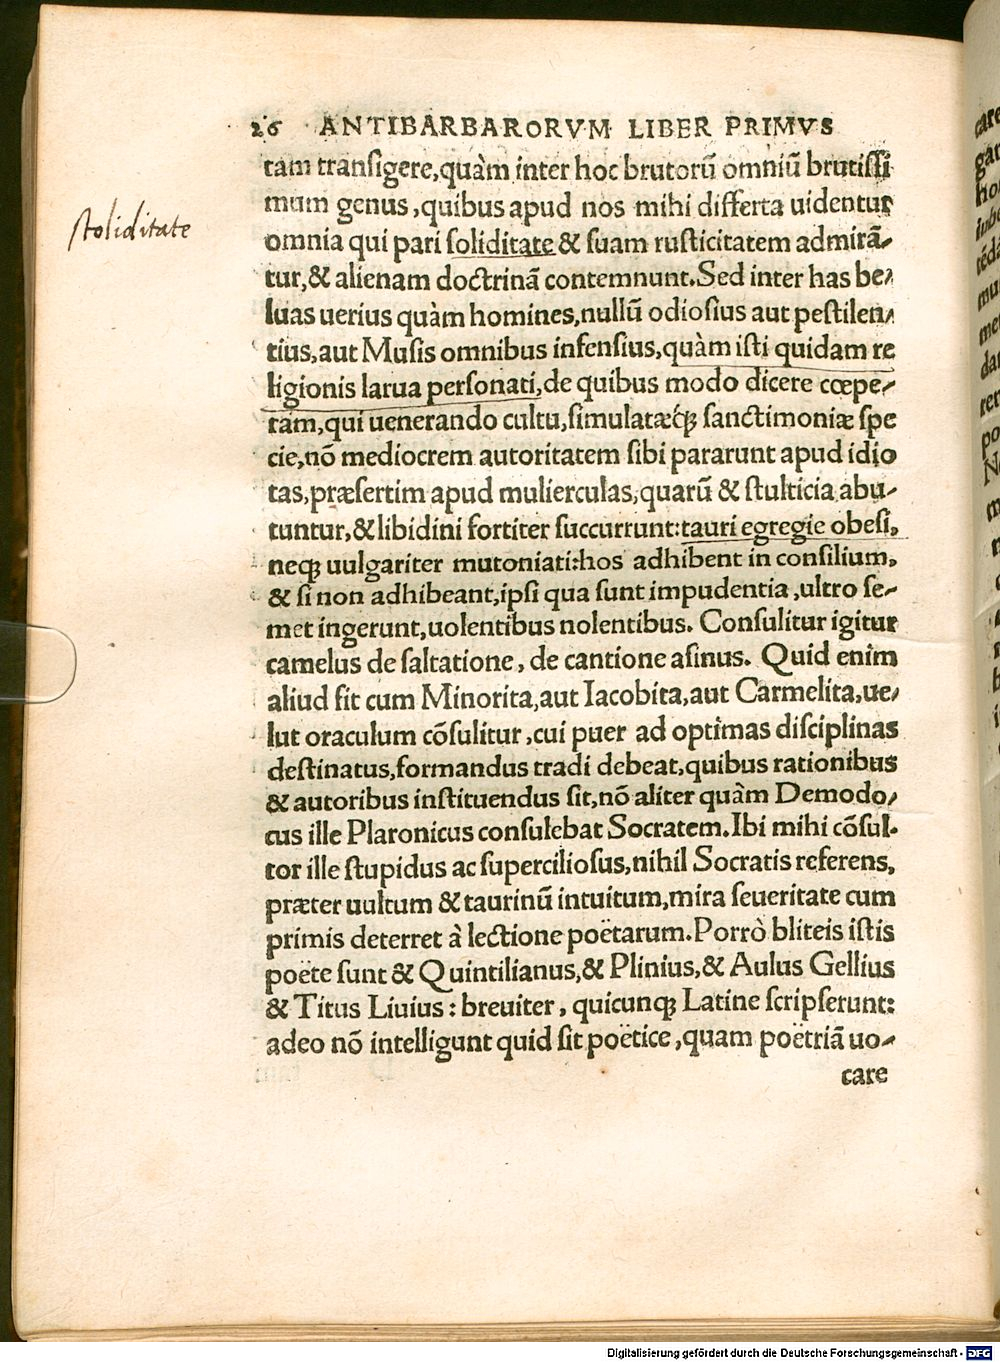 26 ANTIBARBARORVM LIBER PRIMVS
tam transigere, quàm inter hoc brutorū omniū brutissi
mum genus, quibus apud nos mihi differta uidentur
stoliditate
omnia qui pari soliditate & suam rusticitatem admirā-
tur, & alienam doctrinā contemnunt. Sed inter has be-
luas uerius quàm homines, nullū odiosius aut pestilen-
tius, aut Musis omnibus infensius, quàm isti quidam re
ligionis larua personati, de quibus modo dicere cœpe-
ram, qui uenerando cultu, simulatæq́ꝫ sanctimoniæ spe
cie, nō mediocrem autoritatem sibi pararunt apud idio
tas, præsertim apud mulierculas, quarū & stulticia abu-
tuntur, & libidini fortiter succurrunt: tauri egregie obesi,
neqꝫ uulgariter mutoniati: hos adhibent in consilium,
& si non adhibeant, ipsi qua sunt impudentia, ultro se-
met ingerunt, uolentibus nolentibus. Consulitur igitur
camelus de saltatione, de cantione asinus. Quid enim
aliud fit cum Minorita, aut Iacobita, aut Carmelita, ue-
lut oraculum cōsulitur, cui puer ad optimas disciplinas
destinatus, formandus tradi debeat, quibus rationibus
& autoribus instituendus sit, nō aliter quàm Demodo-
cus ille Platonicus consulebat Socratem. Ibi mihi cōsul-
tor ille stupidus ac superciliosus, nihil Socratis referens,
præter uultum & taurinū intuitum, mira seueritate cum
primis deterret à lectione poëtarum. Porrò bliteis istis
poëte sunt & Quintilianus, & Plinius, & Aulus Gellius
& Titus Liuius: breuiter, quicunqꝫ Latine scripserunt:
adeo nō intelligunt quid sit poëtice, quam poëtriā uo-
care
Digitalisierung gefördert durch die Deutsche Forschungsgemeinschaft - DFG